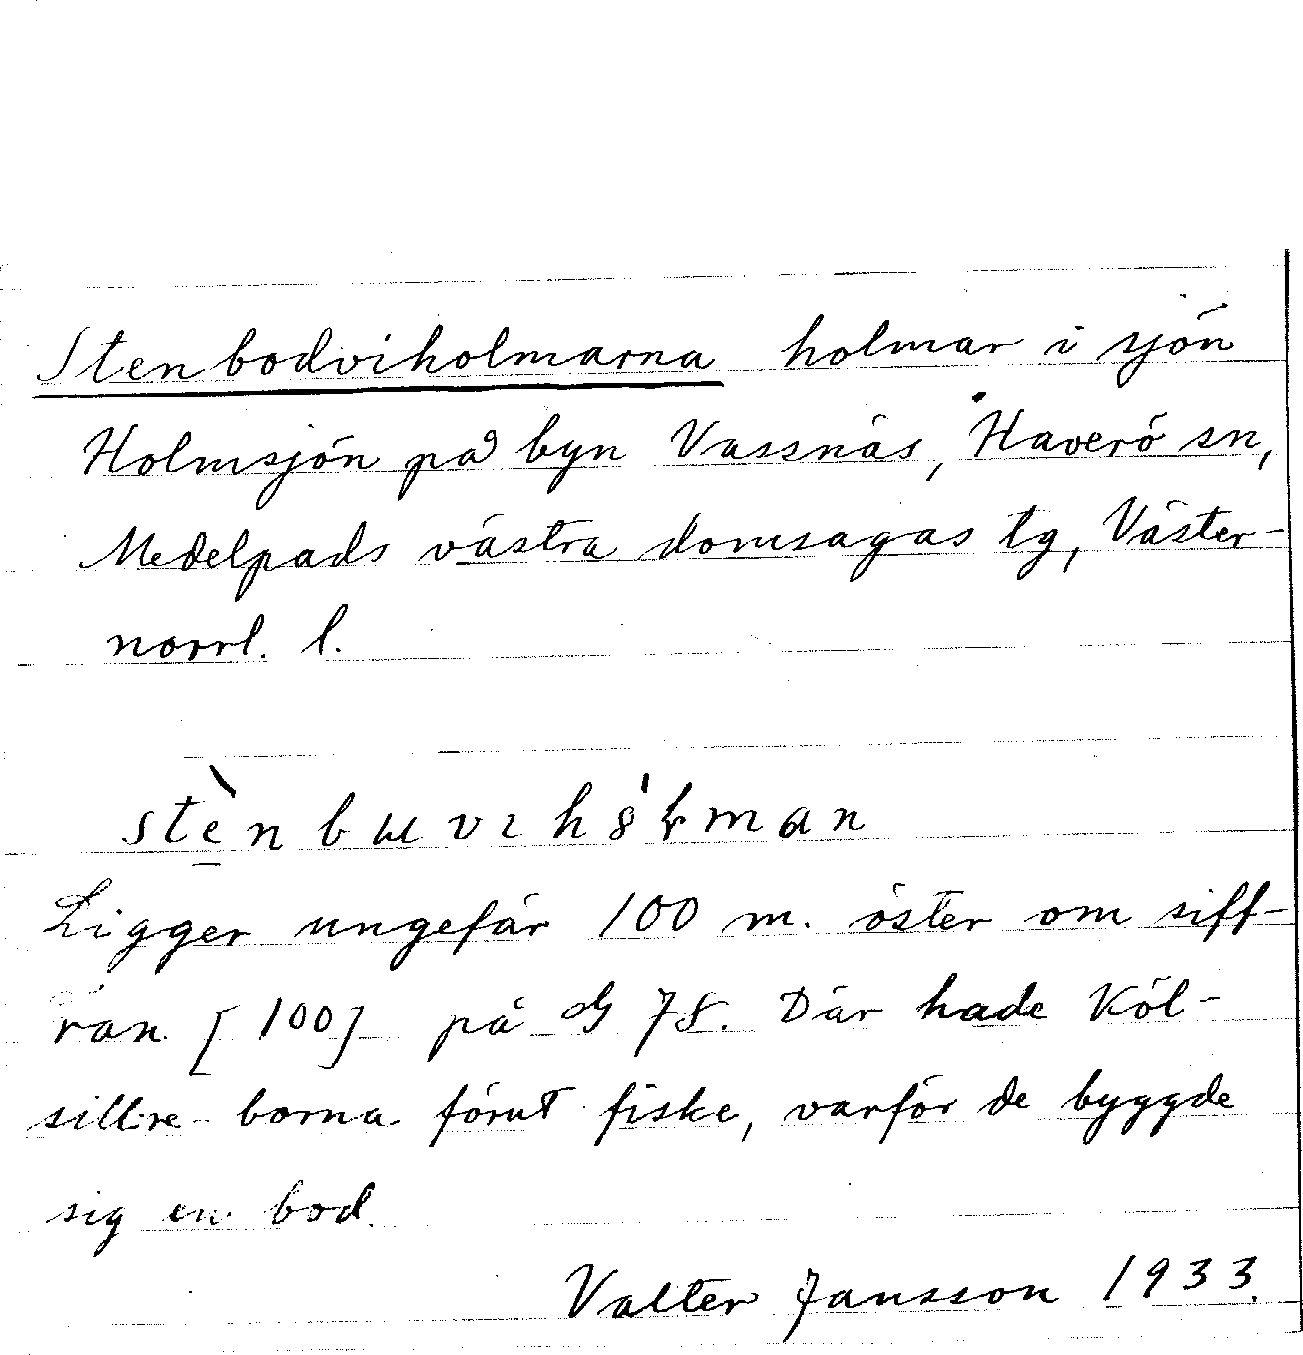 Stenbodviholmarna holmar i sjön
Holmsjön på byn Vassnäs, Haverö sn,
Medelpads västra domsagas tg, Väster-
norrl. l.
Ligger ungefär 100 m. öster om siff-
ran [100] på G 78. Där hade Köl-
sillre borna förut fiske, varför de byggde
sig en bod.
Valter Jansson 1933.